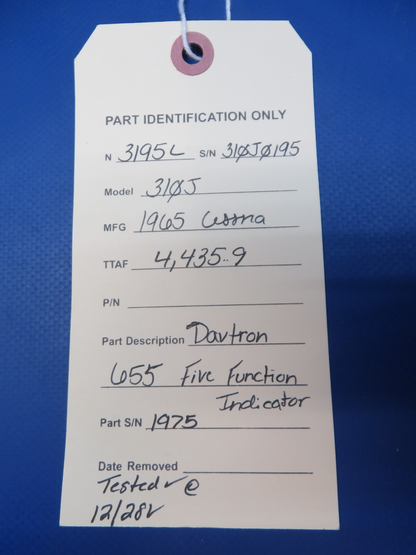 PART IDENTIFICATION ONLY
N 3195L S/N 310J0195
Model 310J
MFG 1965 Cessna
TTAF 4,435.9
P/N
Part Description Davtron
655 Five Function
Indicator
Part S/N 1975
Date Removed
Tested ✓ @
12/28V